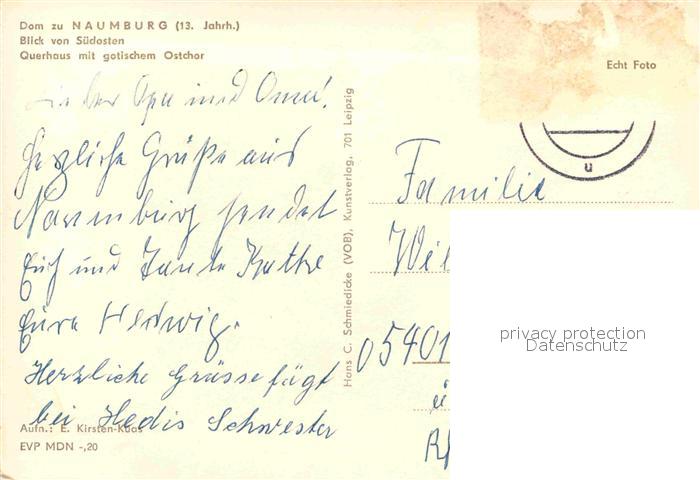 Dom zu NAUMBURG (13. Jahrh.)
Blick von Südosten
Querhaus mit gotischem Ostchor
Echt Foto
Lieber Opa und Oma!
Herzliche Grüße aus
Naumburg sendet
Euch und Tante Käthe
Eure Hedwig.
Herzliche Grüsse fügt
bei Hedis Schwester
Aufn.: E. Kirsten-Kuas
EVP MDN -,20
Hans C. Schmiedicke (VOB), Kunstverlag, 701 Leipzig
u
Familie
Wil
05401
ü
Rh
privacy protection
Datenschutz